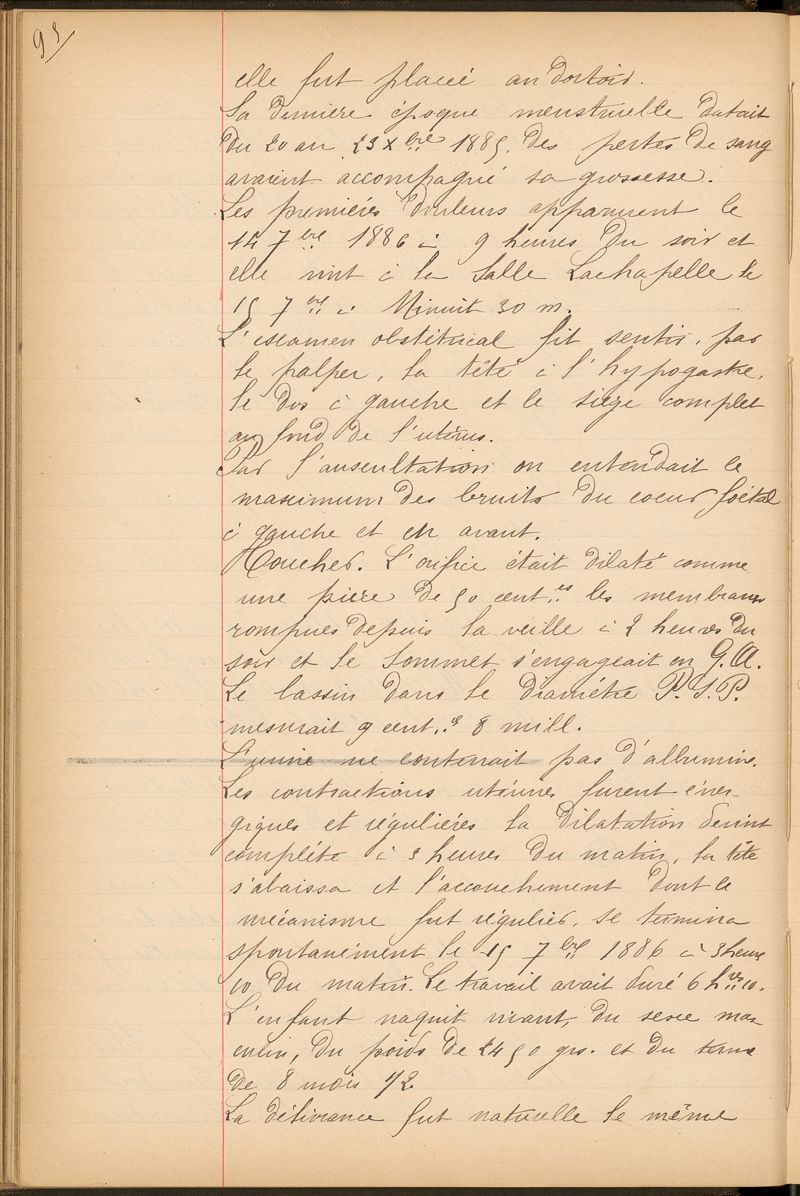 95
elle fut placée au dortoir.
Sa dernière époque menstruelle datait
du 20 au 23 Xbre 1885. des pertes de sang
avaient accompagné sa grossesse.
Les premières douleurs apparurent le
14 7bre 1886 à 9 heures du soir et
elle vint à la Salle Lachapelle le
15 7bre à Minuit 30 m.
L'examen obstétrical fit sentir, par
le palper, la tête à l'hypogastre,
le dos à gauche et le siège complet
au fond de l'utérus.
Par l'auscultation on entendait le
maximum des bruits du coeur foetal
à gauche et en avant.
Toucher. L'orifice était dilaté comme
une pièce de 50 cent.es les membranes
rompues depuis la veille à 2 heures du
soir et le sommet s'engageait en G.A.
Le bassin dans le diamètre P.S.P.
mesurait 9 cent.es 8 mill.
L'urine ne contenait pas d'albumine.
Les contractions utérines furent éner-
giques et régulières la dilatation devint
complète à 3 heures du matin, la tête
s'abaissa et l'accouchement dont le
mécanisme fut régulier, se termina
spontanément le 15 7bre 1886 à 3 heures
10 du matin. Le travail avait duré 6 hres 10.
L'enfant naquit vivant, du sexe mas
culin, du poids de 2450 grs. et du terme
de 8 mois 1/2
La délivrance fut naturelle le même